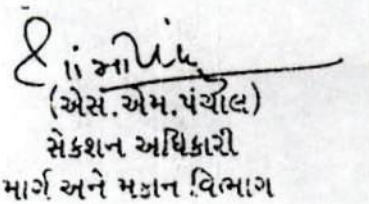 (એસ.એમ.પંચાલ)
સેકશન અધિકારી
માર્ગ અને મકાન વિભાગ